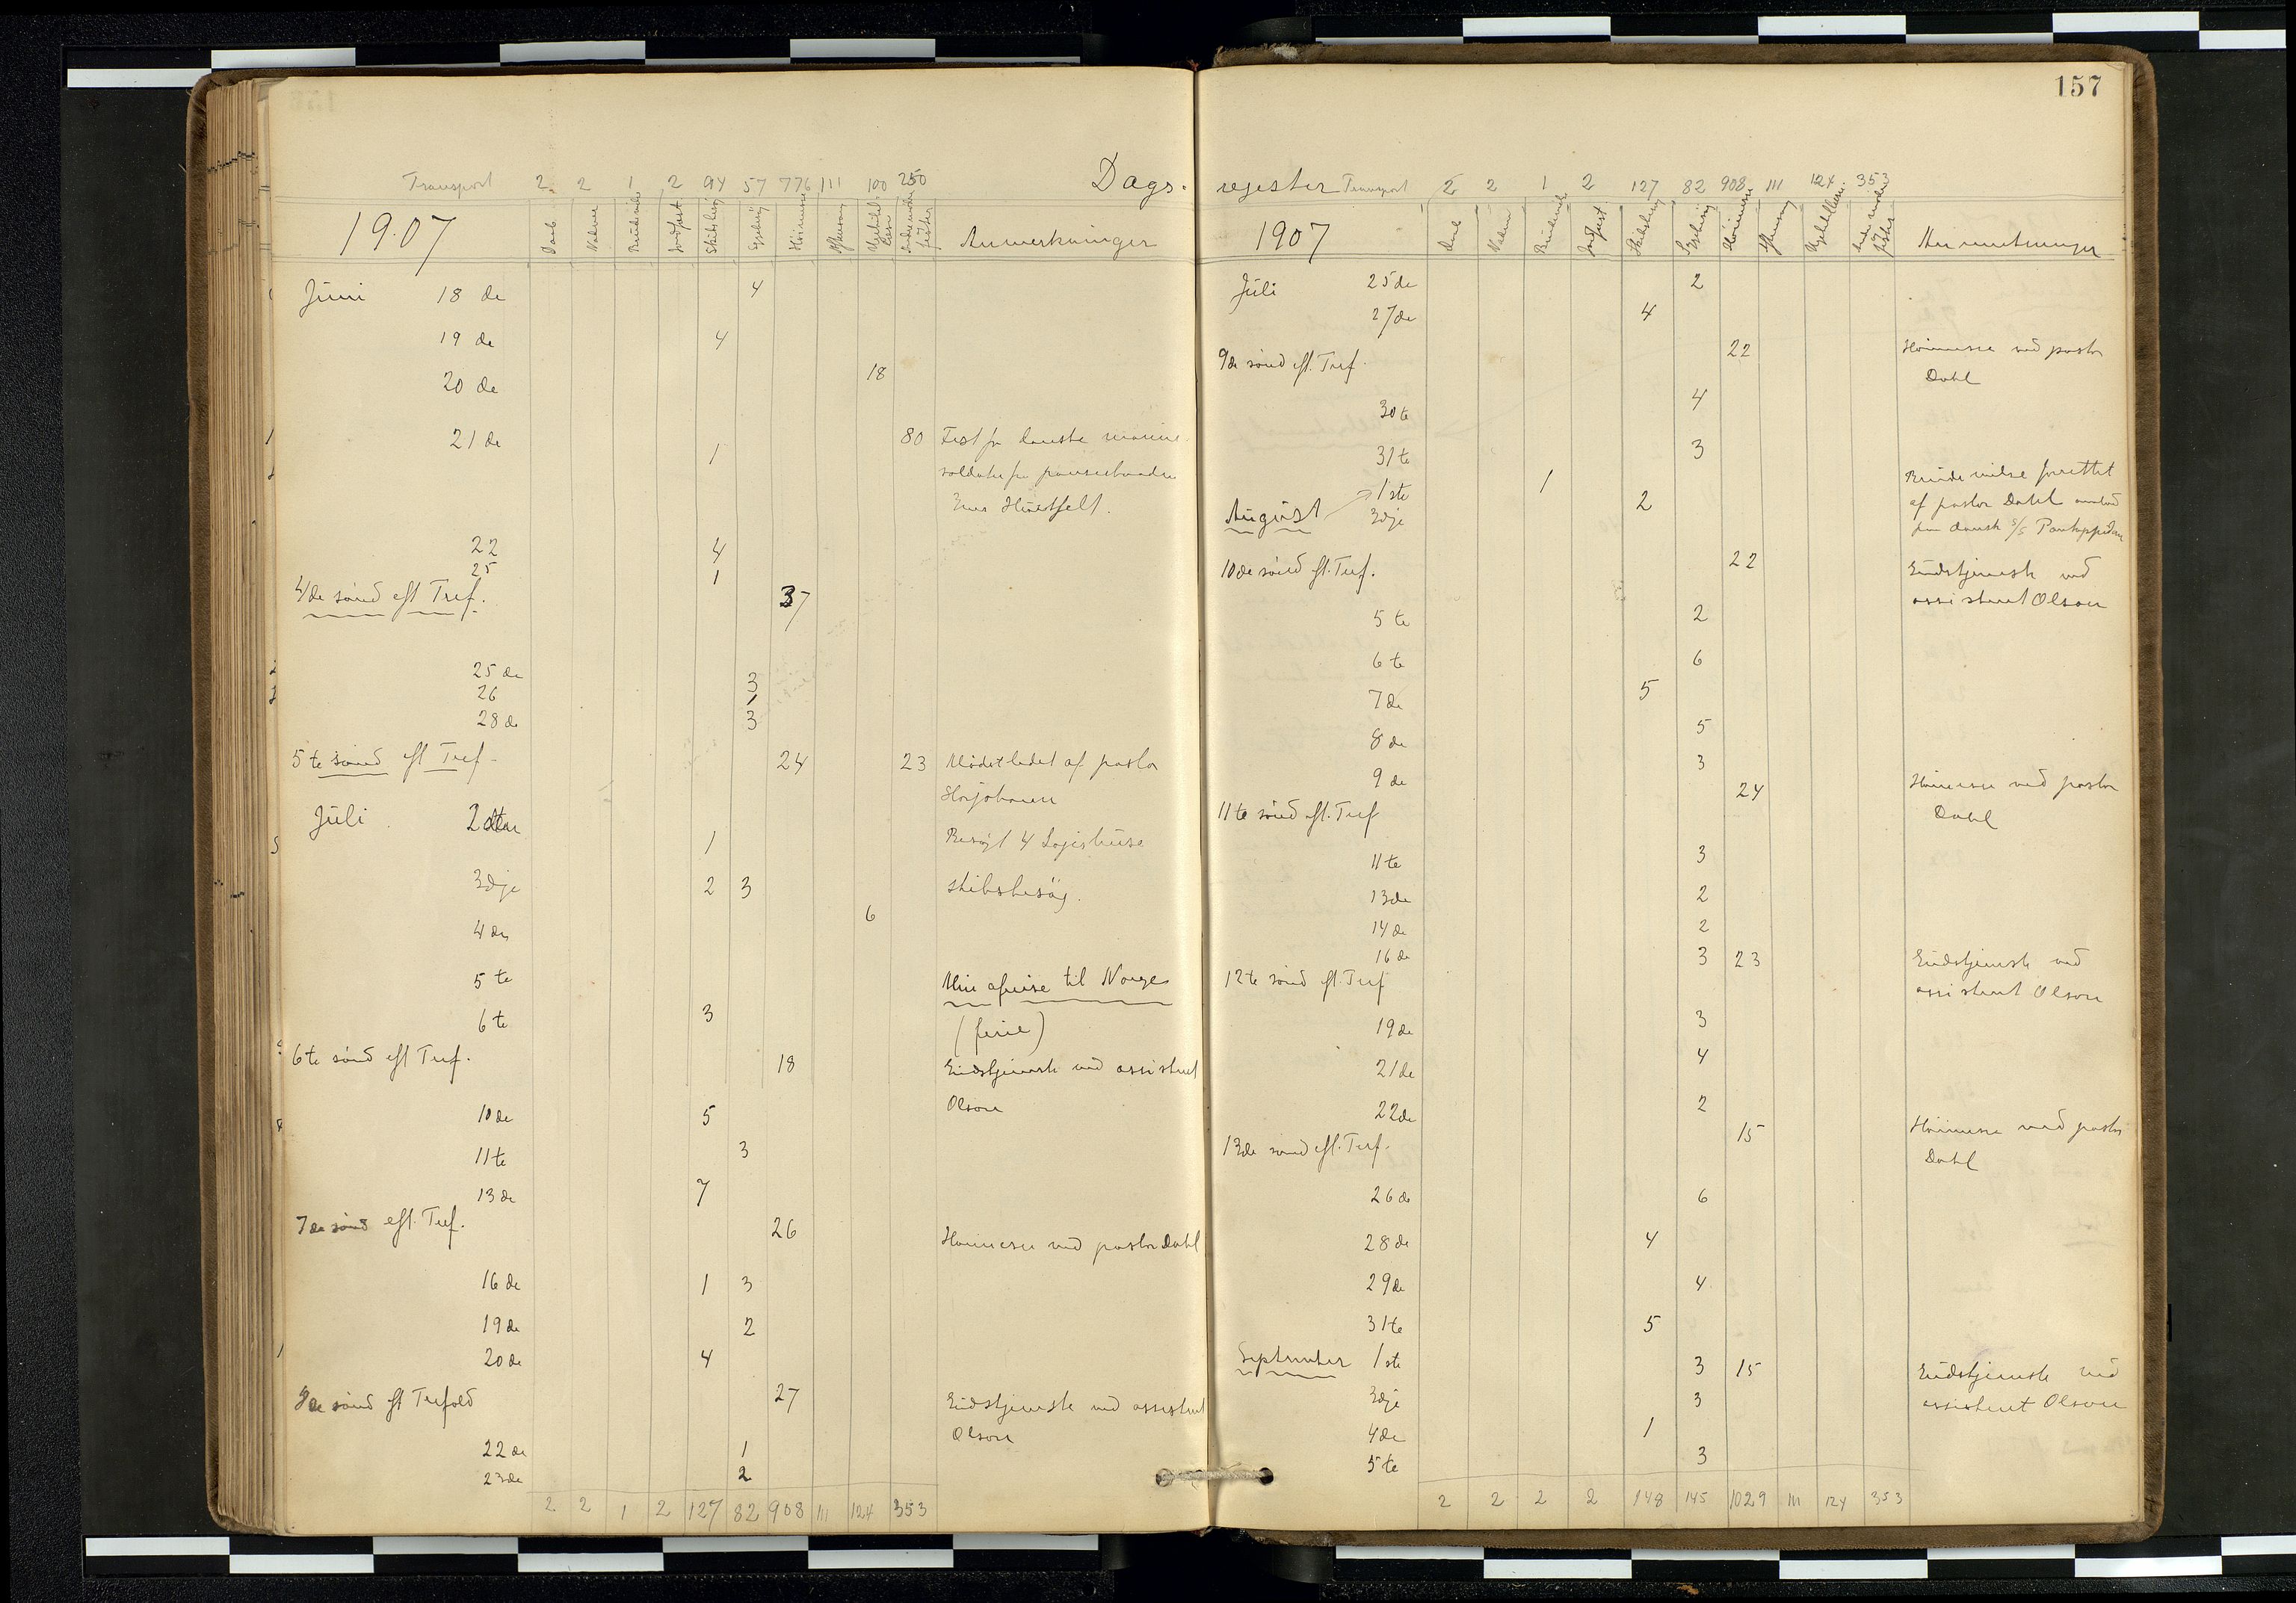 157
Dags- register
Transport 2 2 1 2 94 57 776 111 100 250
1907 Daab Nadver Brudevielse Jordfæst Skibsbesøg Sygebesøg Höimesse Aftensang Anmerkninger
Juni 18 de 4
19 de 4
20 de 18
21 de 1 80 Fest for danske marine-
soldater fra panserbaaden
Iver Hüitfelt.
22 4
25 1
4de sönd eft Tref. 37
25 de 3
26
28 de 3
5te sönd eft Tref. 24 23 Mödet ledet af pastor
Juli 2den 1 Besögt 4 Logishuse
3dje 2 3 Skibsbesög.
4de 6
5te Min afreise til Norge
6te 3 (ferie)
6te sönd eft Tref. 18 Gudstjeneste ved assistent
Olson
10de 5
11te 3
13de 7
7de sönd eft. Tref. 26 Höimesse ved pastor Dahl
16de 1 3
19de 2
20de 4
8de sönd eft Trefold 27 Gudstjeneste ved assistent
Olson
22de 1
23de 2
2 2 1 2 127 82 908 111 124 353
Transport 2 2 1 2 127 82 908 111 124 353
1907 Daab Nadver Brudeviels Jordfæst Skibsbesög Sygebesög Höimesse Aftensang Anmerkninger
Juli 25de 2
27de 4
9de sönd eft. Tref. 22 Höimesse ved pastor
Dahl
30te 4
31te 3
August 1ste 1 Brudevielse forrettet
3dje 2 af pastor Dahl ombord
10de sönd eft. Tref. 22 Gudstjeneste ved
assistent Olson
5te 2
6te 6
7de 5
8de 5
9de 3
11te sönd eft. Tref 24 Höimesse ved pastor
Dahl
11te 3
13de 2
14de 2
16de 3
12te sönd eft. Tref 23 Gudstjeneste ved
assistent Olson
19de 3
21de 4
22de 2
13de sönd eft. Tref. 15 Höimesse ved pastor
Dahl
26de 6
28de 4
29de 4
31te 5
September 1ste 3 15 Gudstjeneste ved
assistent Olson
3dje 3
4de 1
5te 3
2 2 2 2 148 145 1029 111 124 353